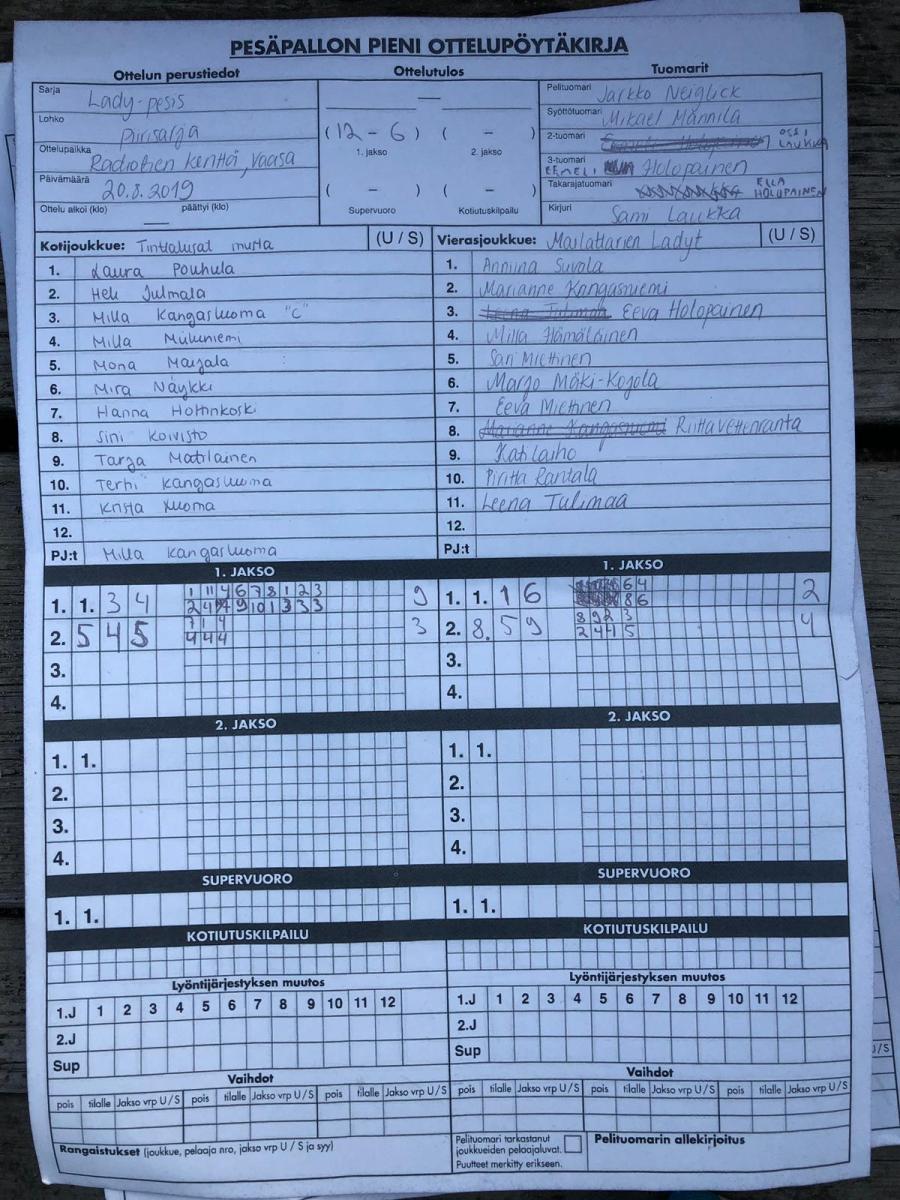 PESÄPALLON PIENI OTTELUPÖYTÄKIRJA
Ottelun perustiedot Ottelutulos Tuomarit
Sarja Lady-pesis
Lohko piirisarja
Ottelupaikka Radiotien kenttä, Vaasa
Päivämäärä 20.8.2019
Ottelu alkoi (klo) — päättyi (klo)
—
(12 - 6) ( - )
1. jakso 2. jakso
( - ) ( - )
Supervuoro Kotiutuskilpailu
Pelituomari Jarkko Neiglick
Syöttötuomari Mikael Männilä
2-tuomari OSSI LAUKKA
3-tuomari EEMELI Holopainen
Takarajatuomari ELLA HOLOPAINEN
Kirjuri Sami Laukka
Kotijoukkue: musta (U / S)
1. Laura Pouhula
2. Heli Julmala
3. Milla Kangasluoma "C"
4. Milla
5. Mona Marjala
6. Mira Näykki
7. Hanna Hottinkoski
8. Sini Koivisto
9. Tarja Matilainen
10. Terhi Kangasluoma
11. Krista Luoma
12.
PJ:t Milla Kangasluoma
Vierasjoukkue: Mailattarien Ladyt (U / S)
1. Anniina Suvola
2. Marianne Kangasniemi
3. Eeva Holopainen
4. Milla Hämäläinen
5. Sari Miettinen
6. Marjo Mäki-Kojola
7. Eeva Miettinen
8. Marianne Kangasniemi Riitta Vettenranta
9. Kati Laiho
10. Piritta Rantala
11. Leena Tulimaa
12.
PJ:t
1. JAKSO
1. 1. 3 4 1 11 4 6 7 8 1 2 3 9
2 4 9 10 1 3 3 3
2. 5 4 5 7 1 4 3
4 4 4
3.
4.
1. JAKSO
1. 1. 1 6 6 4 2
8 6
2. 8. 5 9 8 9 2 3 4
2 4 4 5
3.
4.
2. JAKSO
1. 1.
2.
3.
4.
2. JAKSO
1. 1.
2.
3.
4.
SUPERVUORO
1. 1.
SUPERVUORO
1. 1.
KOTIUTUSKILPAILU
KOTIUTUSKILPAILU
Lyöntijärjestyksen muutos
1.J 1 2 3 4 5 6 7 8 9 10 11 12
2.J
Sup
Lyöntijärjestyksen muutos
1.J 1 2 3 4 5 6 7 8 9 10 11 12
2.J
Sup
Vaihdot
pois tilalle Jakso vrp U / S pois tilalle Jakso vrp U / S pois tilalle Jakso vrp U / S
Vaihdot
pois tilalle Jakso vrp U / S pois tilalle Jakso vrp U / S pois tilalle Jakso vrp U / S
Rangaistukset (joukkue, pelaaja nro, jakso vrp U / S ja syy)
Pelituomari tarkastanut
joukkueiden pelaajaluvat.
Puutteet merkitty erikseen.
Pelituomarin allekirjoitus